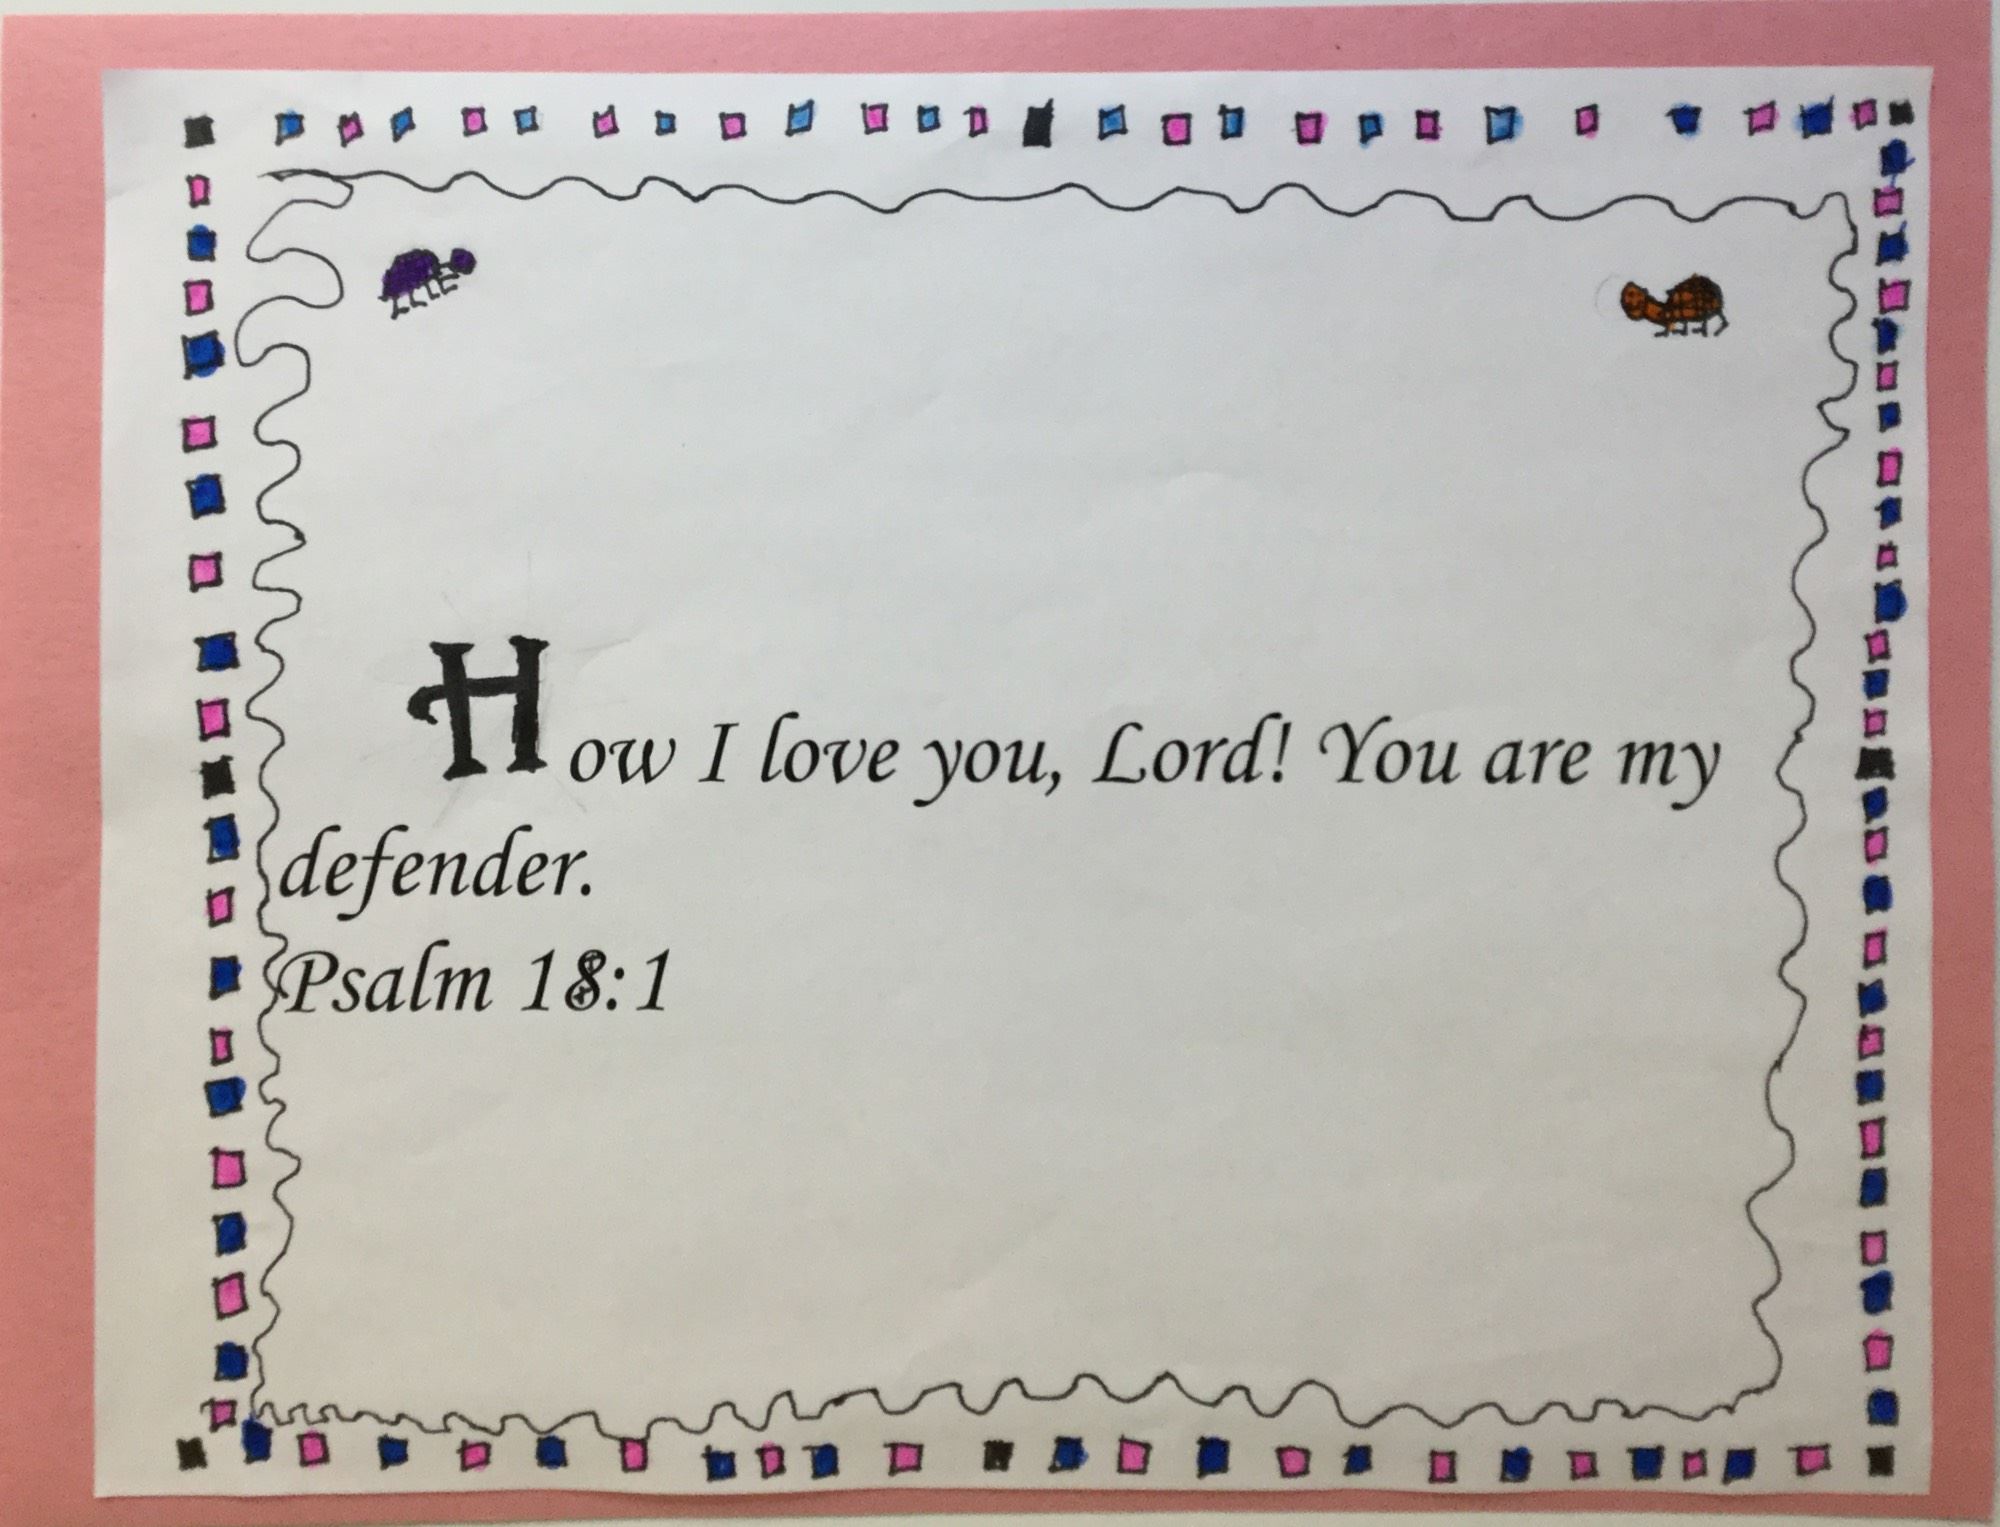 How I love you, Lord! You are my
defender.
Psalm 18:1